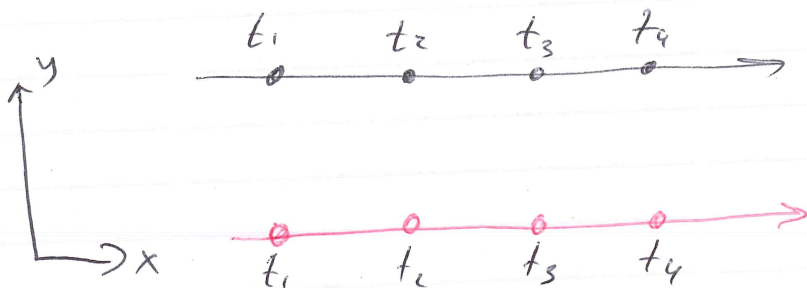 t₁ t₂ t₃ t₄
y
x
t₁ t₂ t₃ t₄